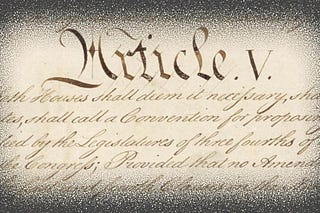 Article. V.
oth Houses shall deem it necessary, sha
tes, shall call a Convention for proposin
ied by the Legislatures of three fourths of
the Congress; Provided that no Amen